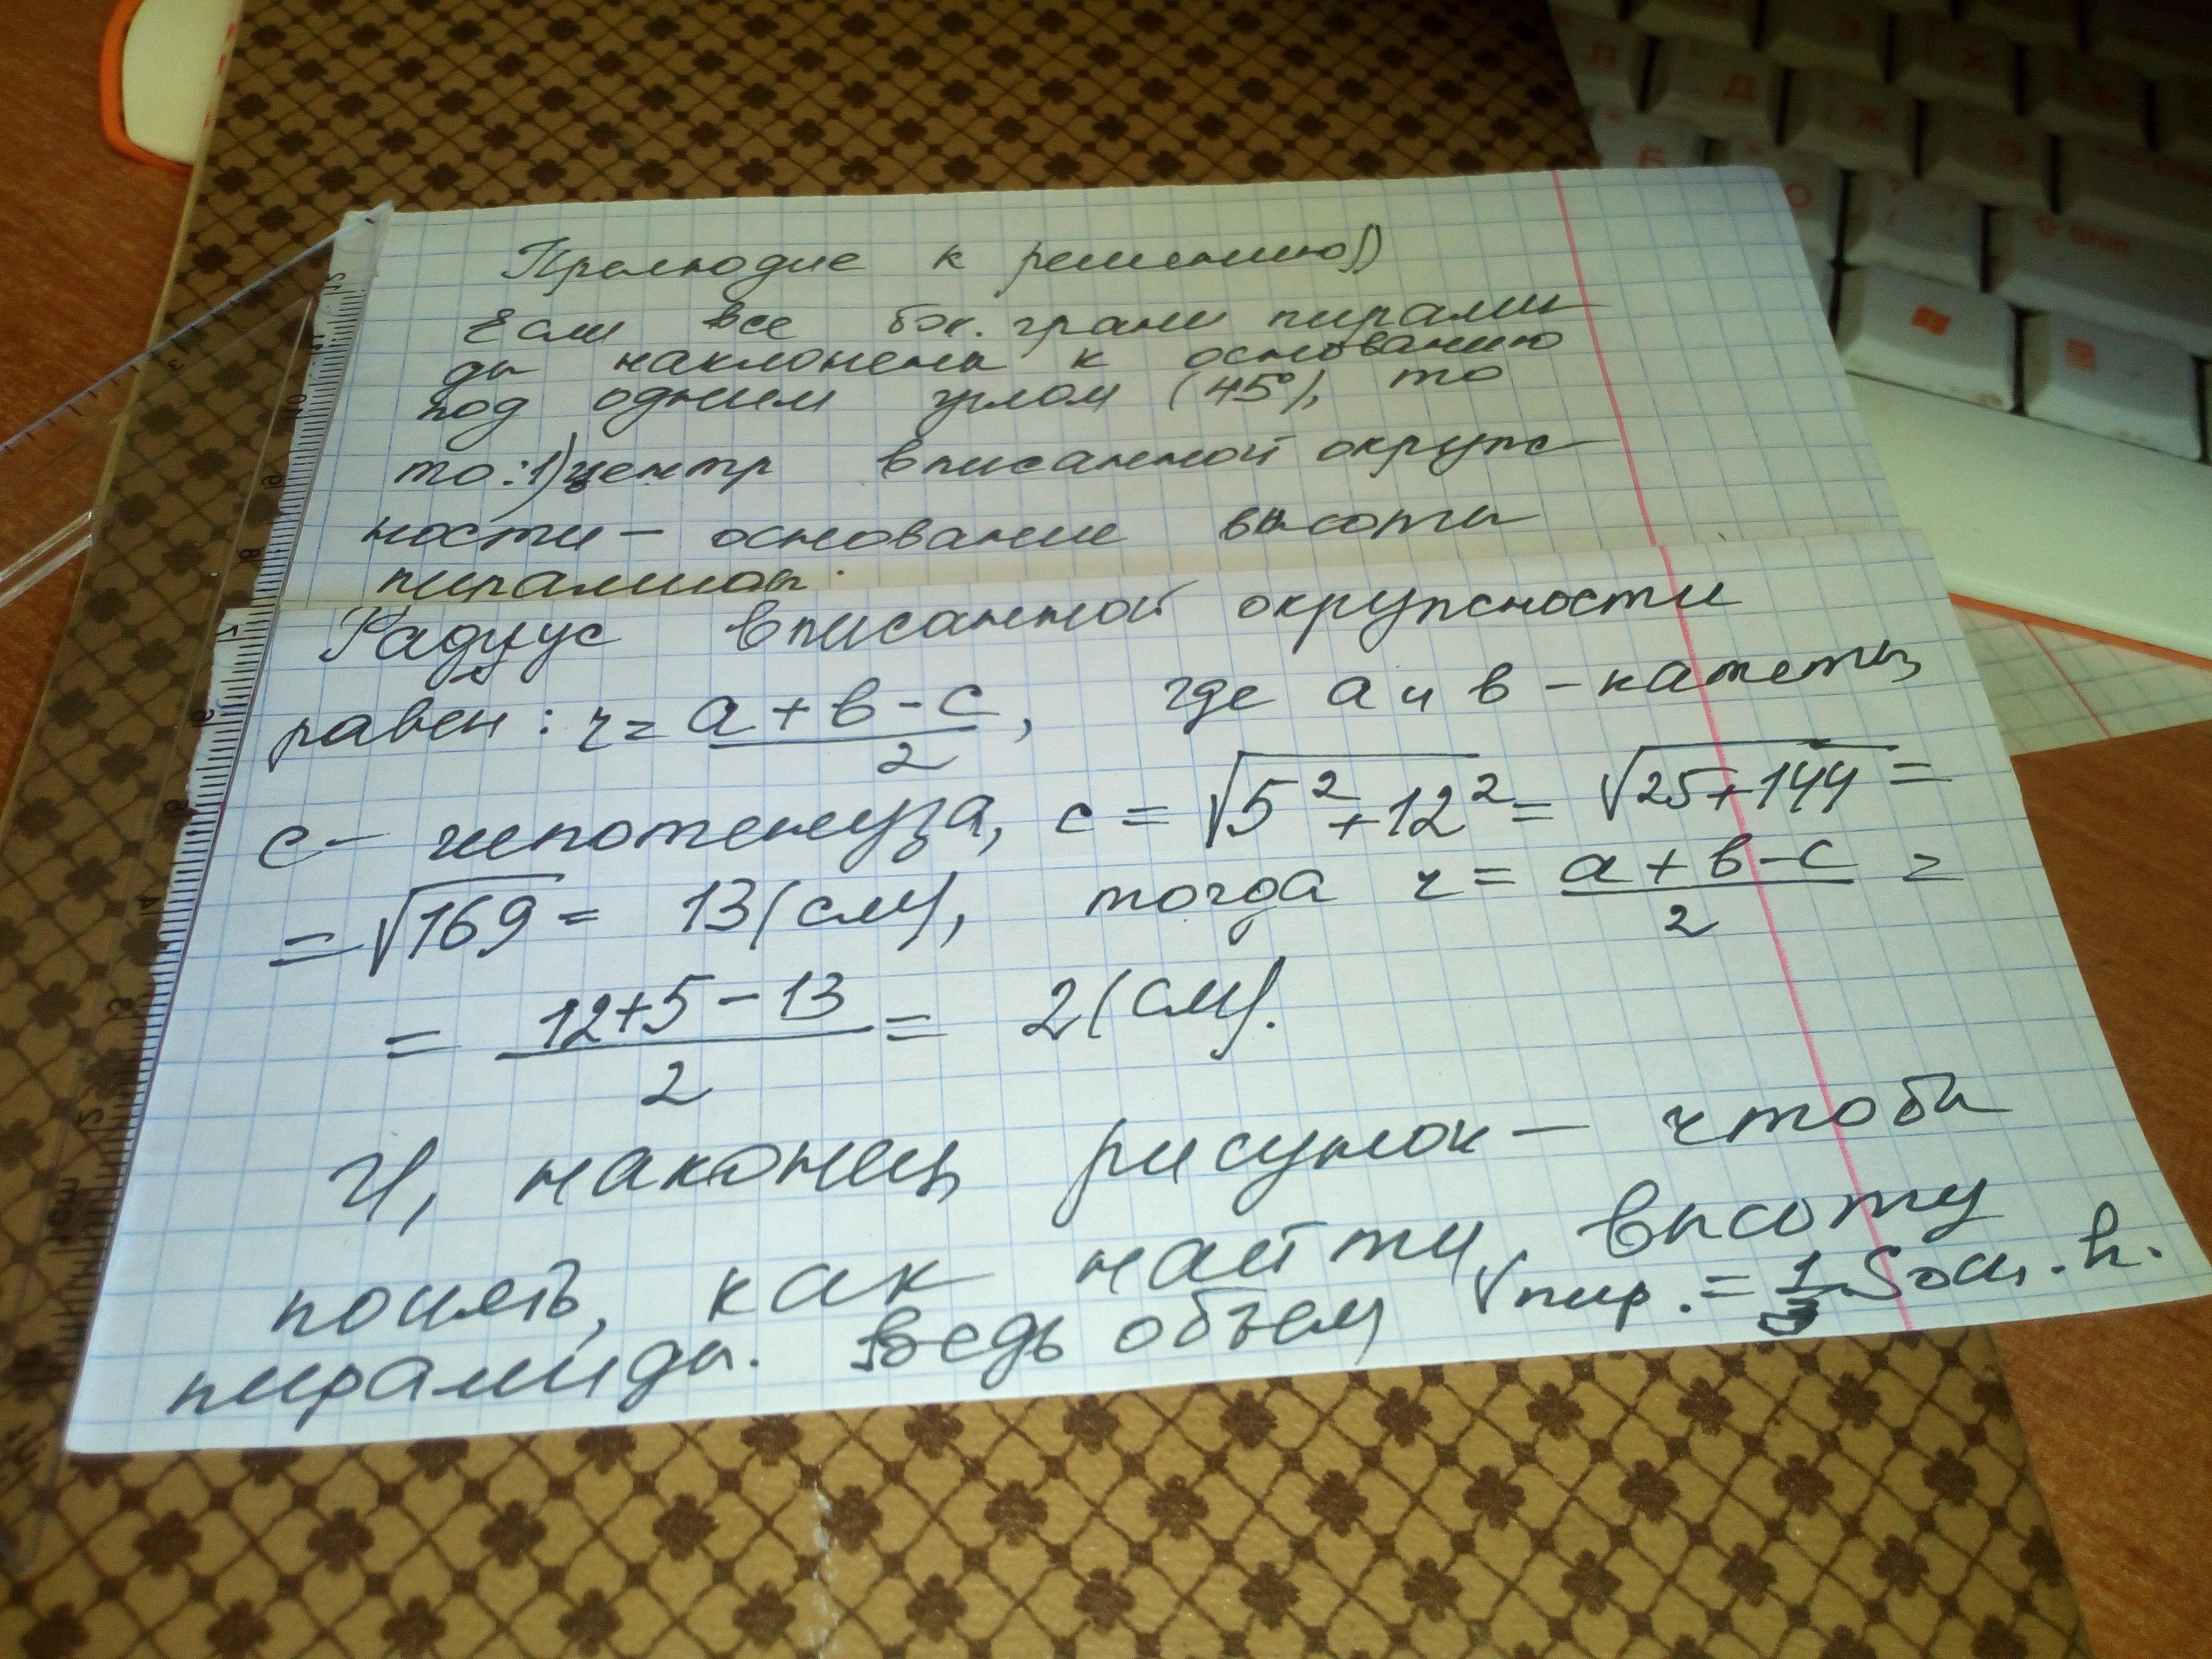 Прелюдие к решению))
Если все бок. грани пирами
ды наклонены к основанию
под одним углом (45°), то
то: 1) центр вписанной окруж
ности – основание высоты
пирамиды.
Радиус вписанной окружности
равен: r = a + b - c / 2, где a и b - катеты,
c - гипотенуза, c = √5² + 12² = √25 + 144 =
= √169 = 13 (см), тогда r = a + b - c / 2 =
= 12 + 5 - 13 / 2 = 2 (см).
И, наконец, рисунок – чтобы
понять, как найти высоту
пирамиды. Ведь объем Vпир. = 1/3 Sосн. h.